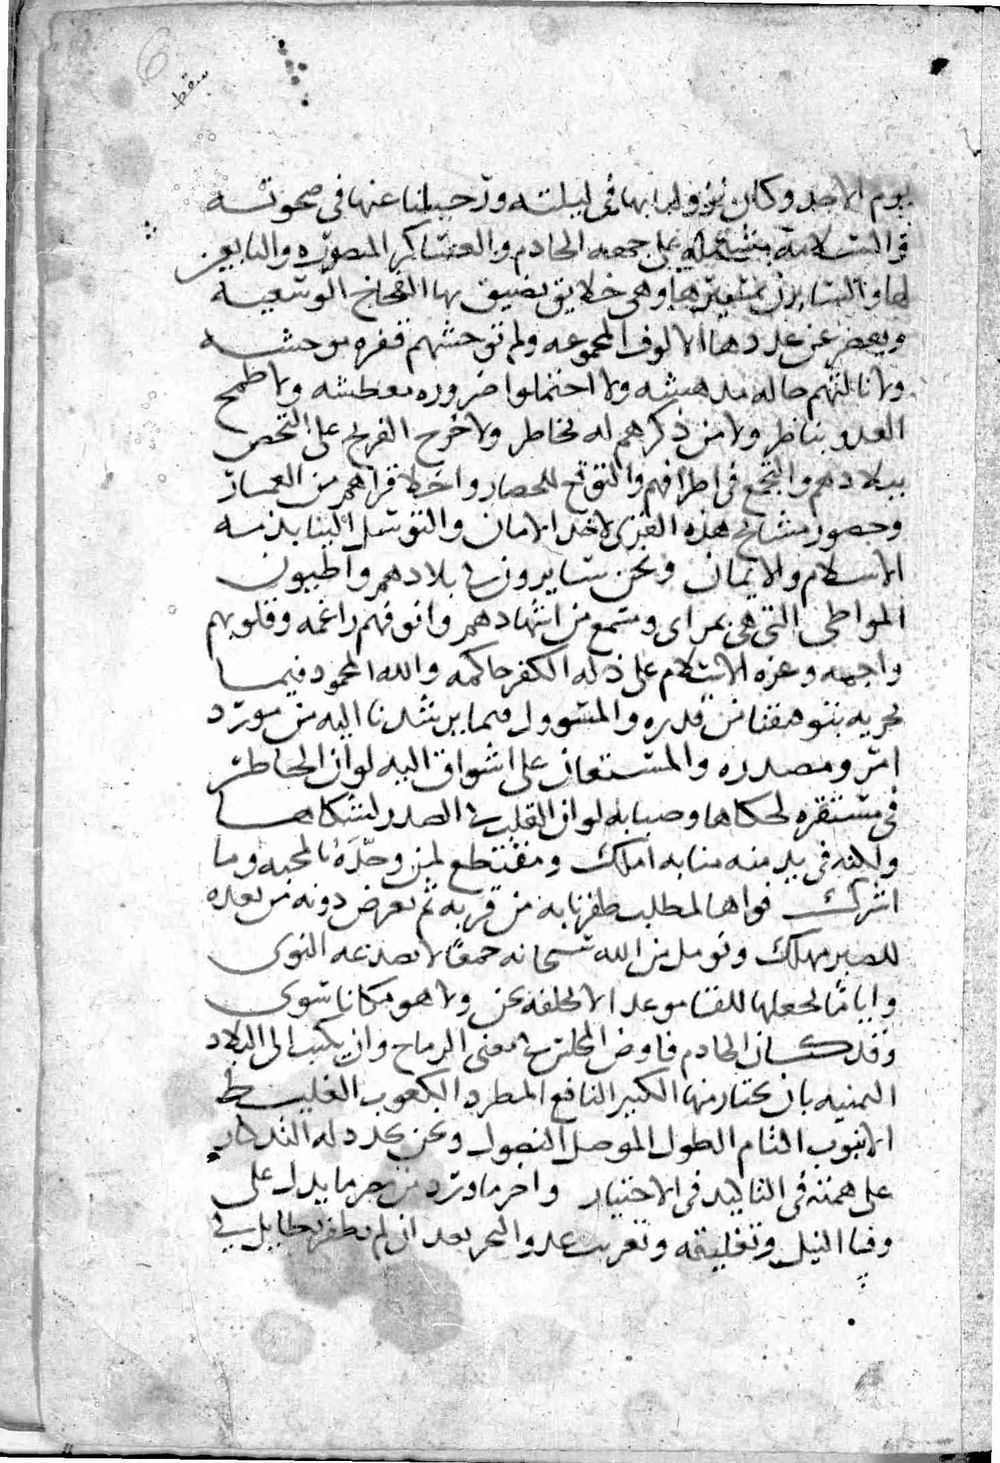 6
سقط
يوم الاحد وكان نزولنا بها فى ليلته ورحيلنا عنها فى صحوته
والسلامة مشتملة على جمعه الخادم والعساكر المنصوره والتابعين
لها والسايرين بمسيرها وهى خلايق تضيق بها الفجاج الوسعيه
ويعجز عن عددها الالوف المجموعه ولم توحشهم قفره موحشه
ولا نالتهم حاله مدهشه ولا احتملوا ضروره معطشه ولا طمح
العدو بناظر ولا من ذكرهم له بخاطر ولا خرج الفرنج على التحصن
ببلادهم والتجمع فى اطرافهم والتوقع للحصار واخلا قراهم من العمار
وحضور مشايخ هذه القرى لاخذ الامان والتوسل الينا بذمه
الاسلام والايمان ونحن سايرون فى بلادهم واطيون
المواطى التى هى بمراى ومسمع من اشهادهم وانوفهم راغمه وقلوبهم
واجمه وعزه الاسلام على ذله الكفر حاكمه والله المحمود فيما
يجريه بنواهضنا من قدره والمسوول فيما يرشدنا اليه من مورد
امره ومصدره والمستعان على اشواق اليه لو ان الخاطر
فى مستقره لحكاها وصبابه لو ان القلب فى الصدر لشكاها
ولكنه فى يد منه منا به املك ومنقطع لمن وحده بالمحبه وما
اشرك فواها لمطلب ظفرنا به من قربه ثم تعرض دونه من بعده
للصبر مهلك ونومل من الله سبحانه جمعا لا تصدعه النوى
واياما يجعلها للقنا موعدا لا نخلفه نحن ولا هو مكانا سوى
وقد كان الخادم فاوض المجلس فى معنى الرماح وان يكتب الى البلاد
اليمنيه بان يختار منها الكبير النافع المطرد الكعوب الغليظ
الانبوب التام الطول الموصل النصول ونحن نجدد له التذكار
على همته فى التاكيد فى الاختيار واخر ما ورد من خبر ما يدل على
وفا النيل وتغليقه وتغريب عدو البحر بعد ان لم يظفر بطايل فى